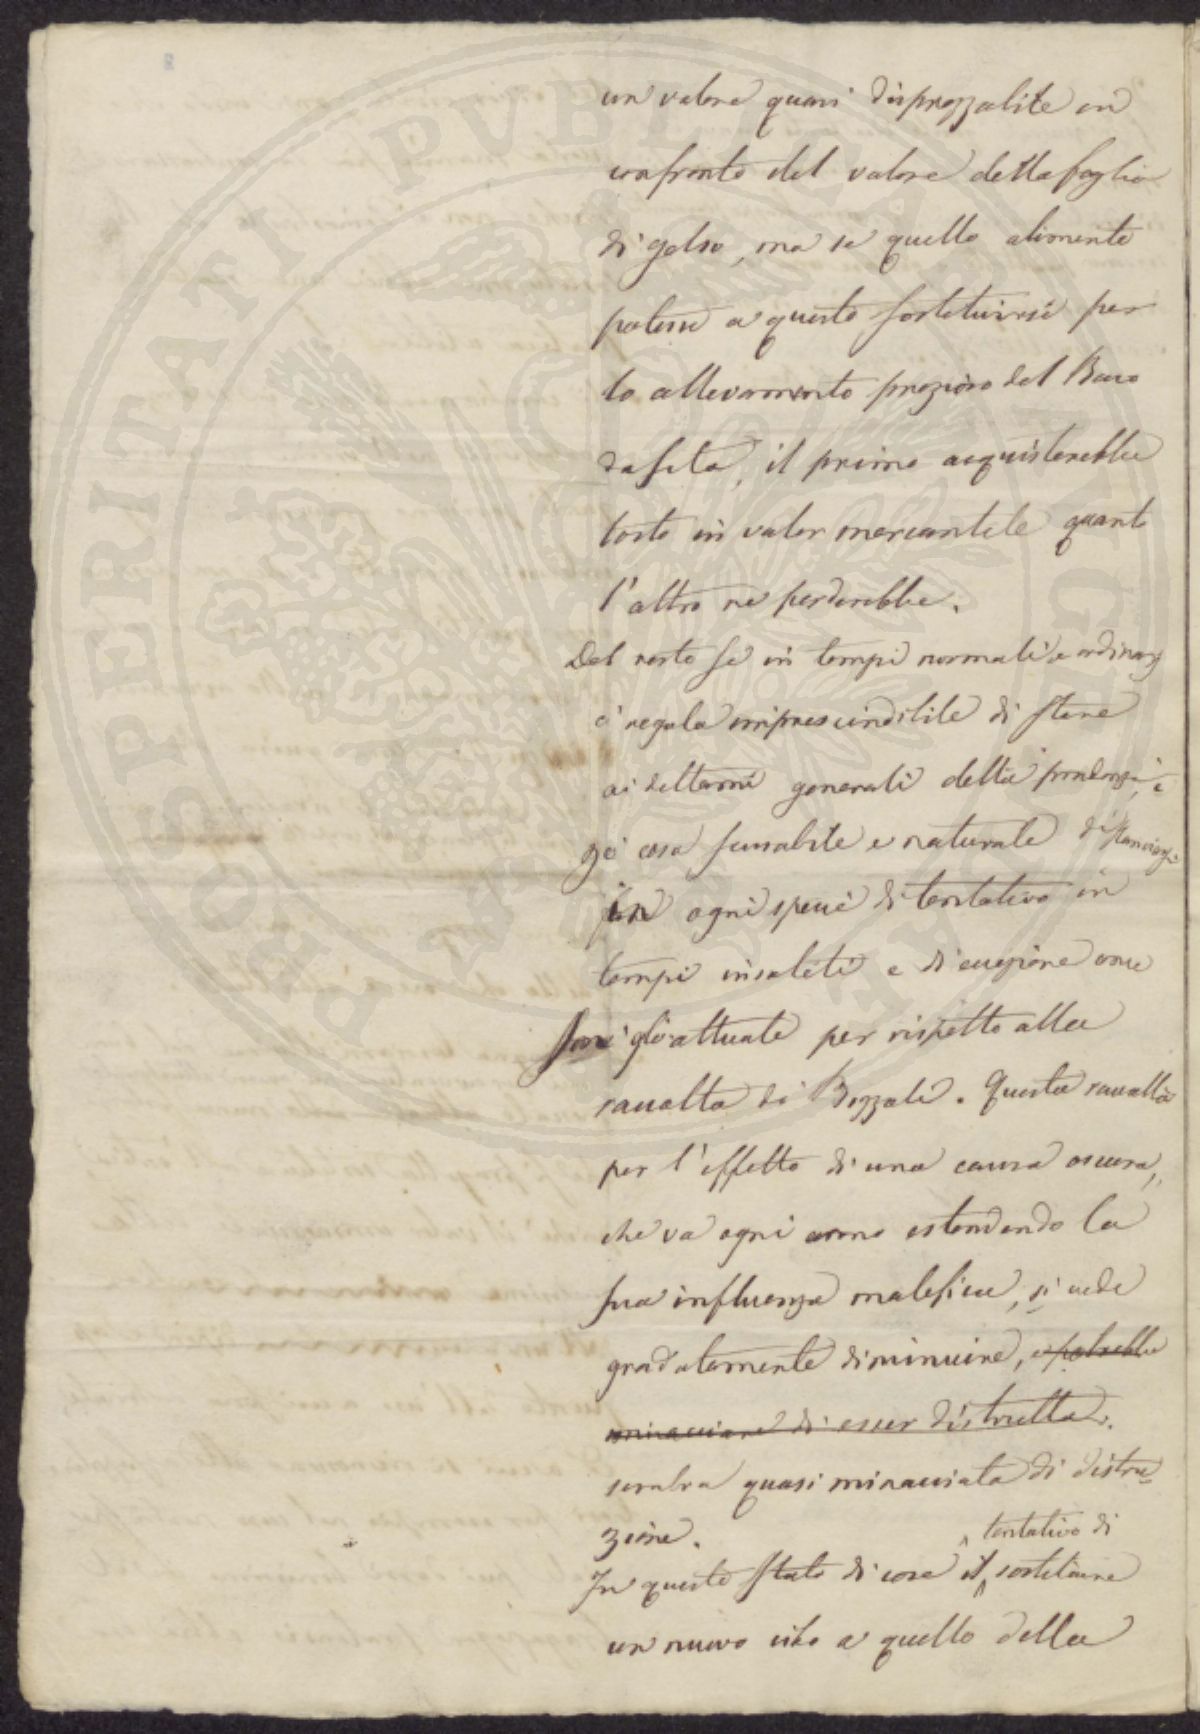 un valore quasi disprezzabile in
confronto del valore della foglia
di gelso, ma se quello alimento
potesse a questo sostituirsi per
lo allevamento prezioso del Baco
da seta, il primo acquisterebbe
tosto in valor mercantile quanto
l'altro ne perderebbe.
Del resto se in tempi normali e ordinarj
è regola imprescindibile di stare
ai dettami generali della prudenza, è
cosa scusabile e naturale di
in ogni specie di tentativo in
tempi insoliti e di eccezione come
gli attuali per rispetto alla
raccolta di Bozzoli. Questa raccolta
per l'effetto di una causa oscura,
che va ogni anno estendendo la
sua influenza malefica, si vede
gradatamente diminuire, e potrebbe
minacciare di esser distrutta.
sembra quasi minacciata di distru-
zione.
tentativo di
In questo stato di cose il sostituire
un nuovo cibo a quello della
PROSPERITATI PVBLICAE AVGENDAE